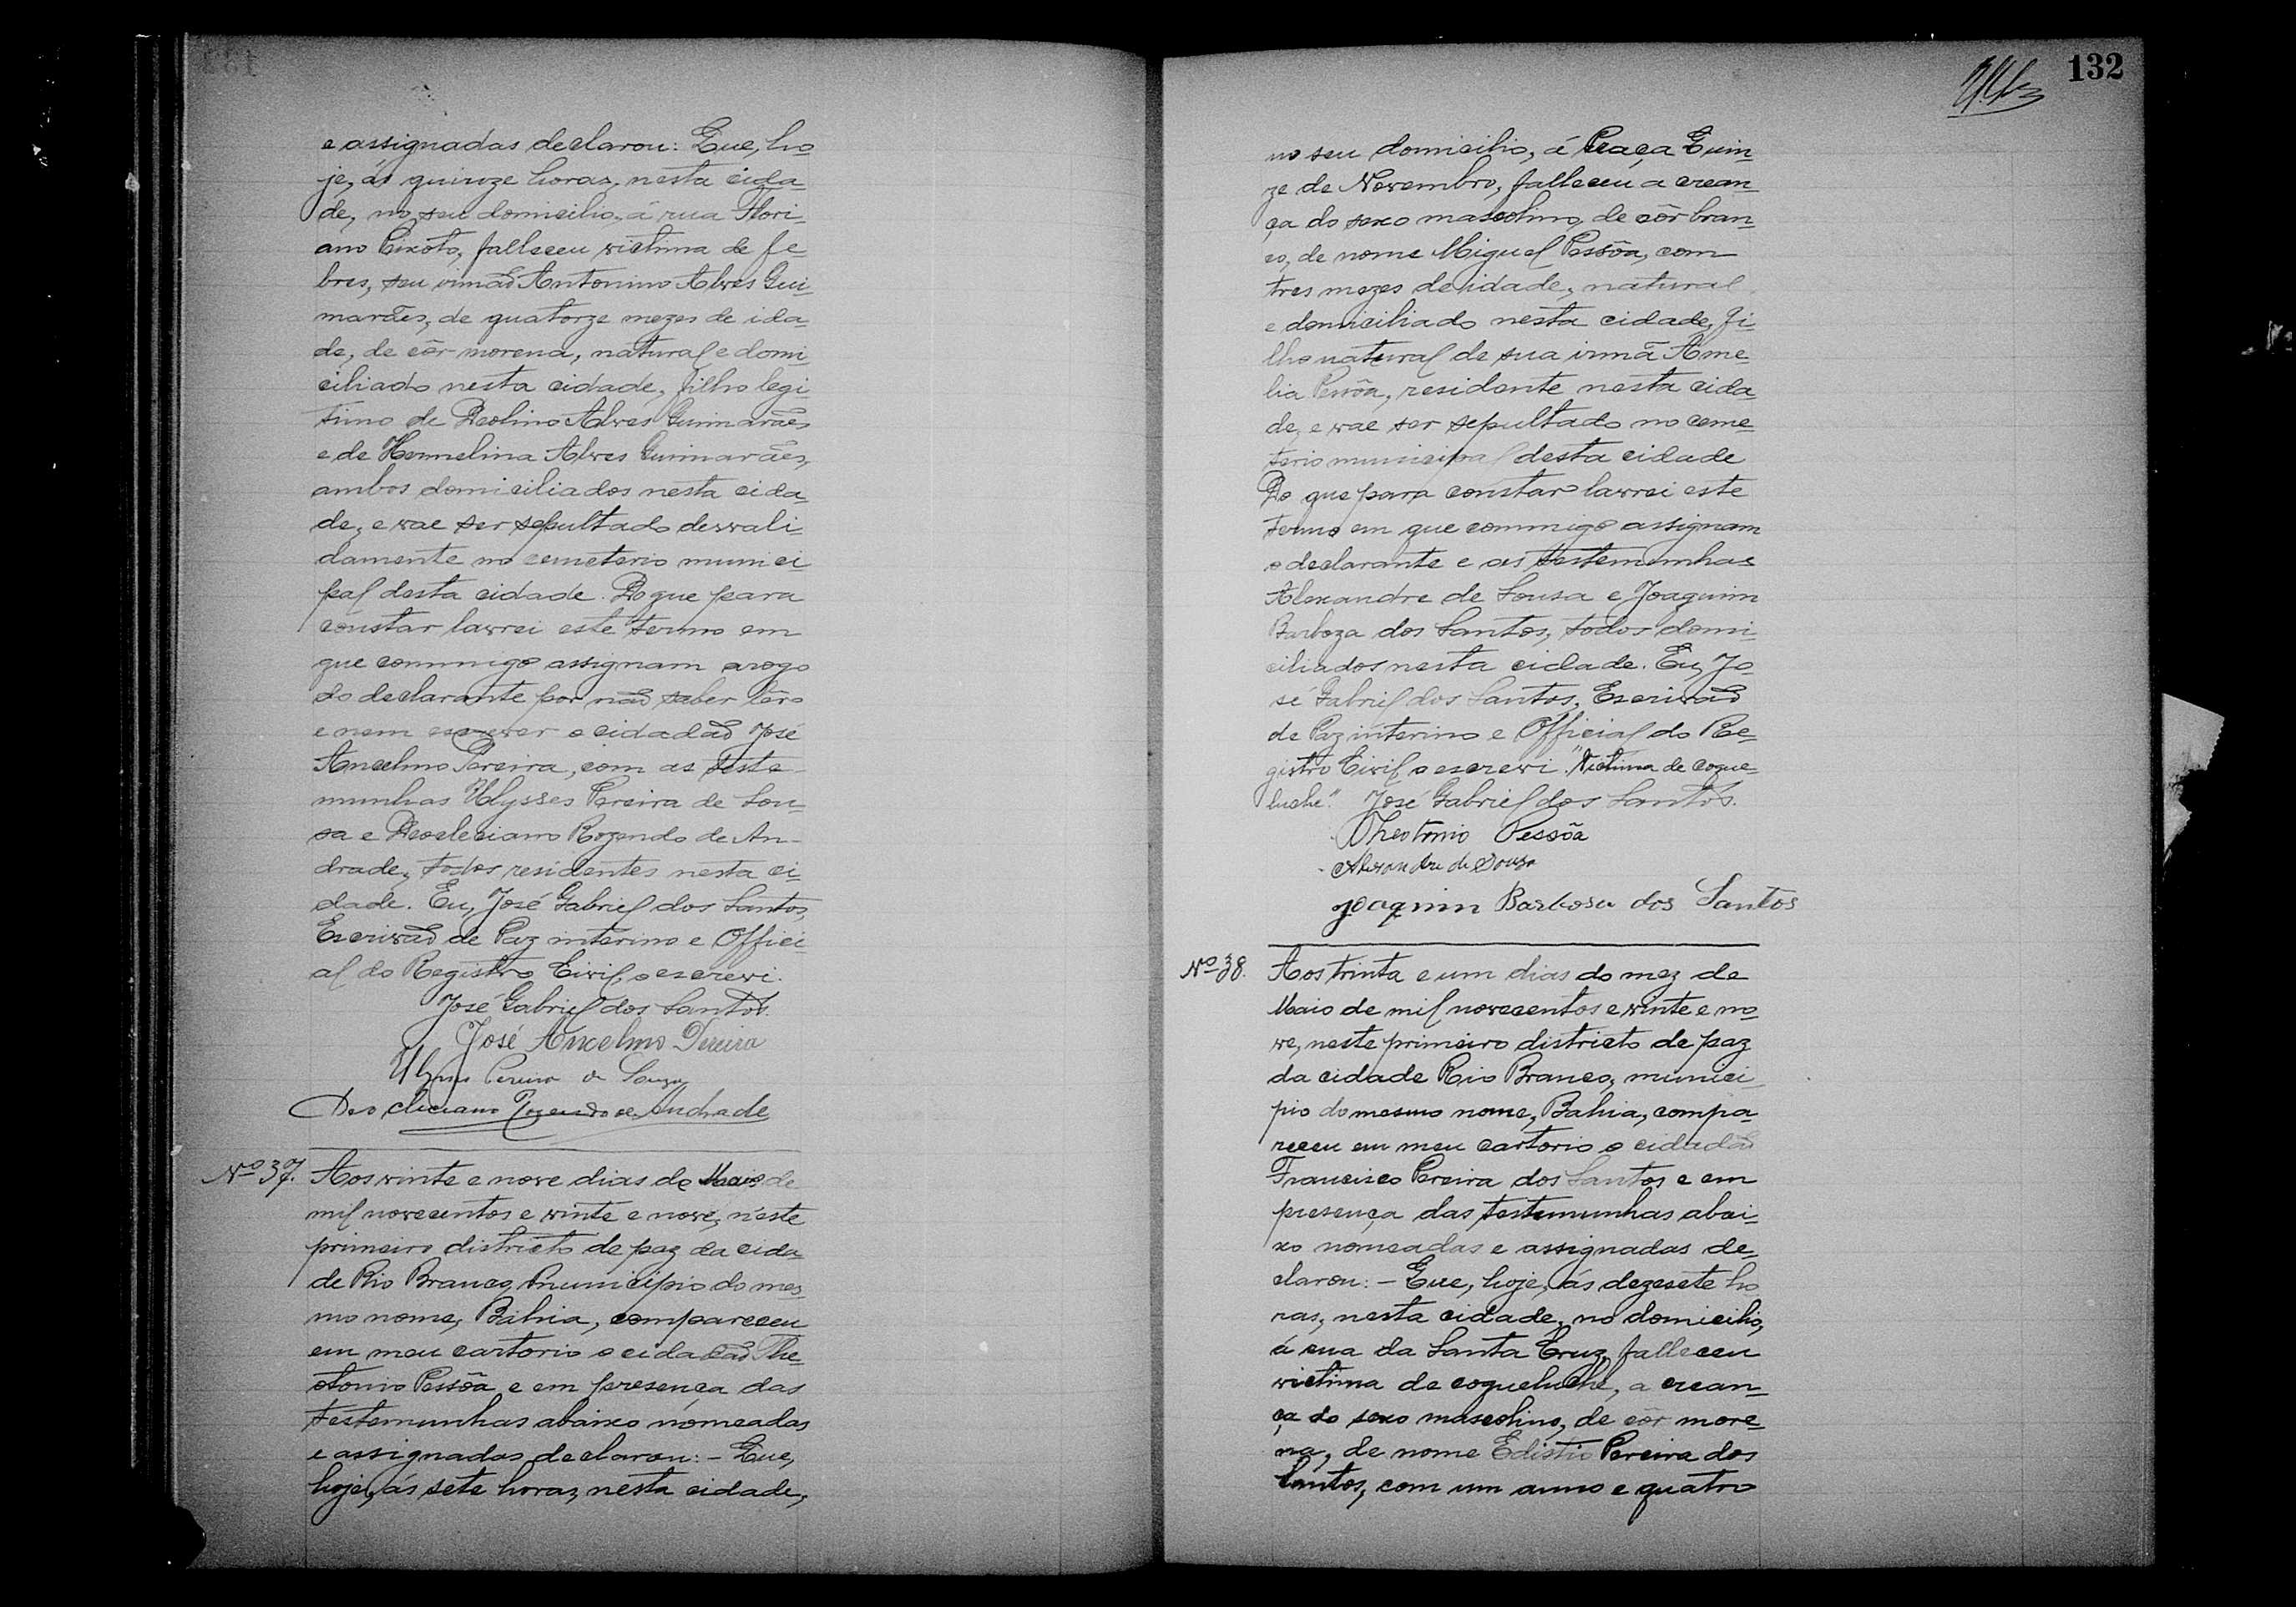 e assignadas declarou: Que, ho-
je, ás quinze horas, nesta cida-
de, no seu domicilio, á rua Flori-
ano Peixoto, falleceu victima de fe-
bres, seu irmaõ Antonino Alves Gui-
marães, de quatorze mezes de ida-
de, de côr morena, natural e domi
ciliado nesta cidade, filho legi-
timo de Deolino Alves Guimarães
e de Hermelina Alves Guimarães,
ambos domiciliados nesta cida-
de, e vae ser sepultado devvali-
damente no cemeterio munici-
pal desta cidade. Do que para
constar lavrei este termo em
que commigo assignam arogo
do declarante por naõ saber lêr
e nem escrever o cidadaõ José
Ancelmo Pereira, com as teste-
munhas Ulysses Pereira de Sou-
sa e Deocleciano Rozendo de An-
drade, todos residentes nesta ci-
dade. Eu, José Gabriel dos Santos,
Escrivaõ de Paz interino e Offici-
al do Registro Civil, o escrevi.
José Gabriel dos Santos.
José Ancelmo Pereira
Ulysses Pereira de Souza
Deocleciano Rozendo de Andrade
Nº 37. Aos vinte e nove dias de Maio de
mil novecentos e vinte e nove, neste
primeiro districto de paz da cida
de Rio Branco, municipio do mes
mo nome, Bahia, compareceu
em meu cartorio o cidadaõ The-
otonio Pessôa e em presença das
testemunhas abaixo nomeadas
e assignadas declarou: - Que,
hoje, ás sete horas, nesta cidade,
132
no seu domicilio, á Praça Quin-
ze de Novembro, falleceu a crean-
ça do sexo mascolino, de côr bran-
co, de nome Miguel Pessôa, com
tres mezes de idade, natural
e domiciliado nesta cidade, fi-
lho natural de sua irmã Ame-
lia Pessôa, residente nesta cida-
de, e vae ser sepultado no ceme-
terio municipal desta cidade
Do que para constar lavrei este
termo em que commigo assignam
o declarante e as testemunhas
Alexandre de Sousa e Joaquim
Barboza dos Santos, todos domi-
ciliados nesta cidade. Eu, Jo-
sé Gabriel dos Santos, Escrivaõ
de Paz interino e Official do Re-
gistro Civil, o escrevi. "Victima de coque-
luche". José Gabriel dos Santos.
Theotonio Pessôa
Alexandre de Souza
Joaquim Barbosa dos Santos
Nº 38. Aos trinta e um dias do mez de
Maio de mil novecentos e vinte e no-
ve, neste primeiro districto de paz
da cidade Rio Branco, munici-
pio do mesmo nome, Bahia, compa-
receu em meu cartorio o cidadaõ
Francisco Pereira dos Santos e em
presença das testemunhas abai-
xo nomeadas e assignadas de-
clarou: - Que, hoje, ás dezesete ho
ras, nesta cidade, no domicilio,
á rua da Santa Cruz, falleceu
victima de coqueluche, a crean-
ça do sexo mascolino, de côr more-
na, de nome Edistio Pereira dos
Santos, com um anno e quatro